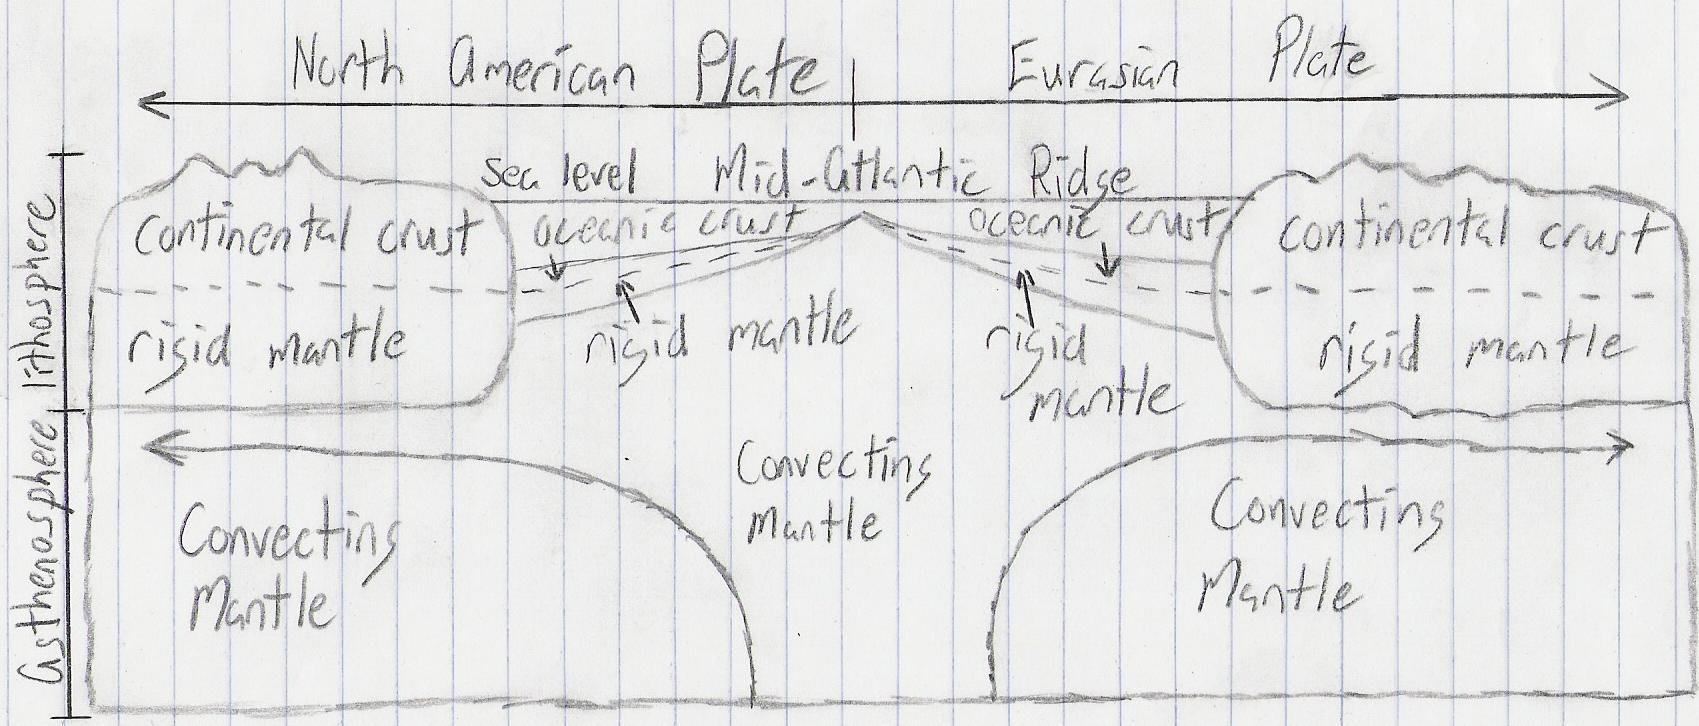 North American Plate
Eurasian Plate
sea level
Mid-Atlantic Ridge
lithosphere
continental crust
oceanic crust
oceanic crust
continental crust
rigid mantle
rigid mantle
rigid
mantle
rigid mantle
Asthenosphere
Convecting
Mantle
Convecting
Mantle
Convecting
Mantle